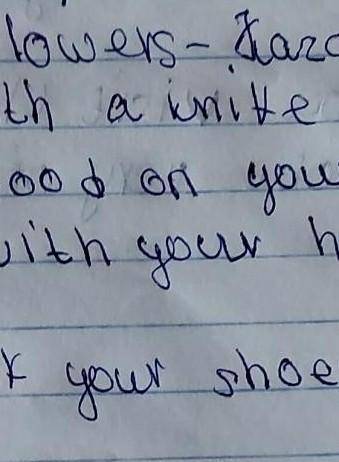 lowers - Hard
th a knife
ood on you
with your h
k your shoe